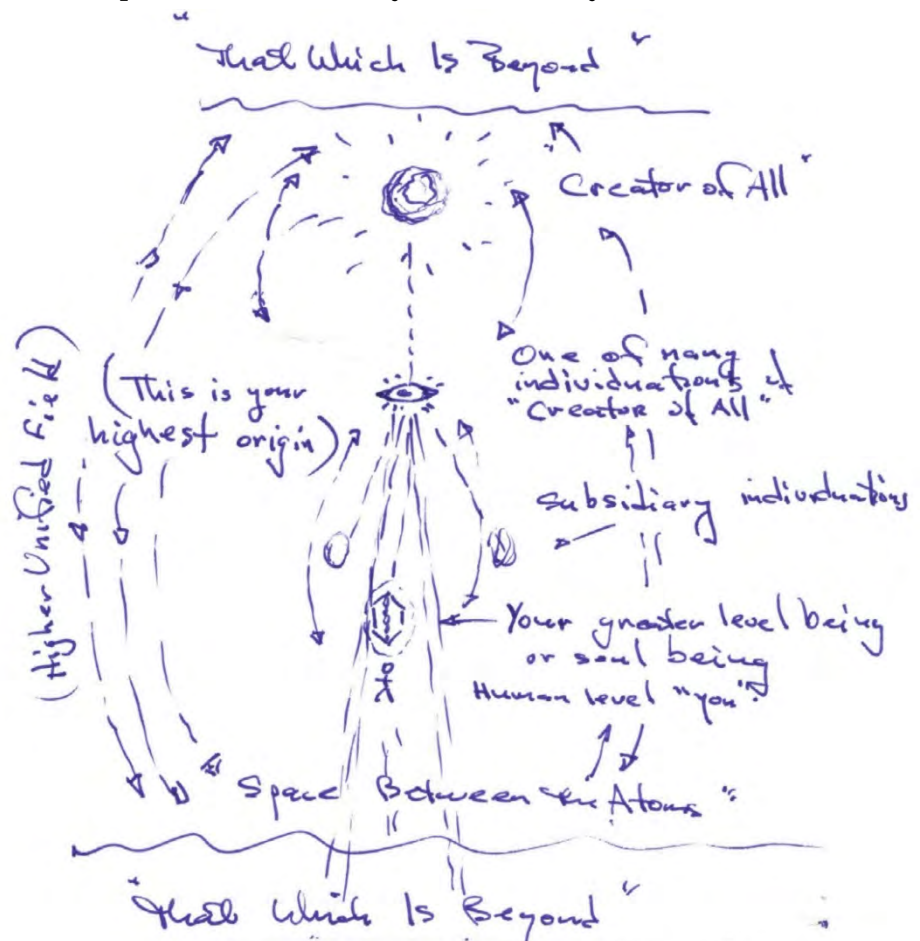 "That Which Is Beyond"
"Creator of All"
(Higher Unified Field)
(This is your
highest origin)
One of many
individuations of
"Creator of All"
Subsidiary individuations
Your greater level being
or soul being
Human level "you".
"Space Between the Atoms"
"That Which Is Beyond"